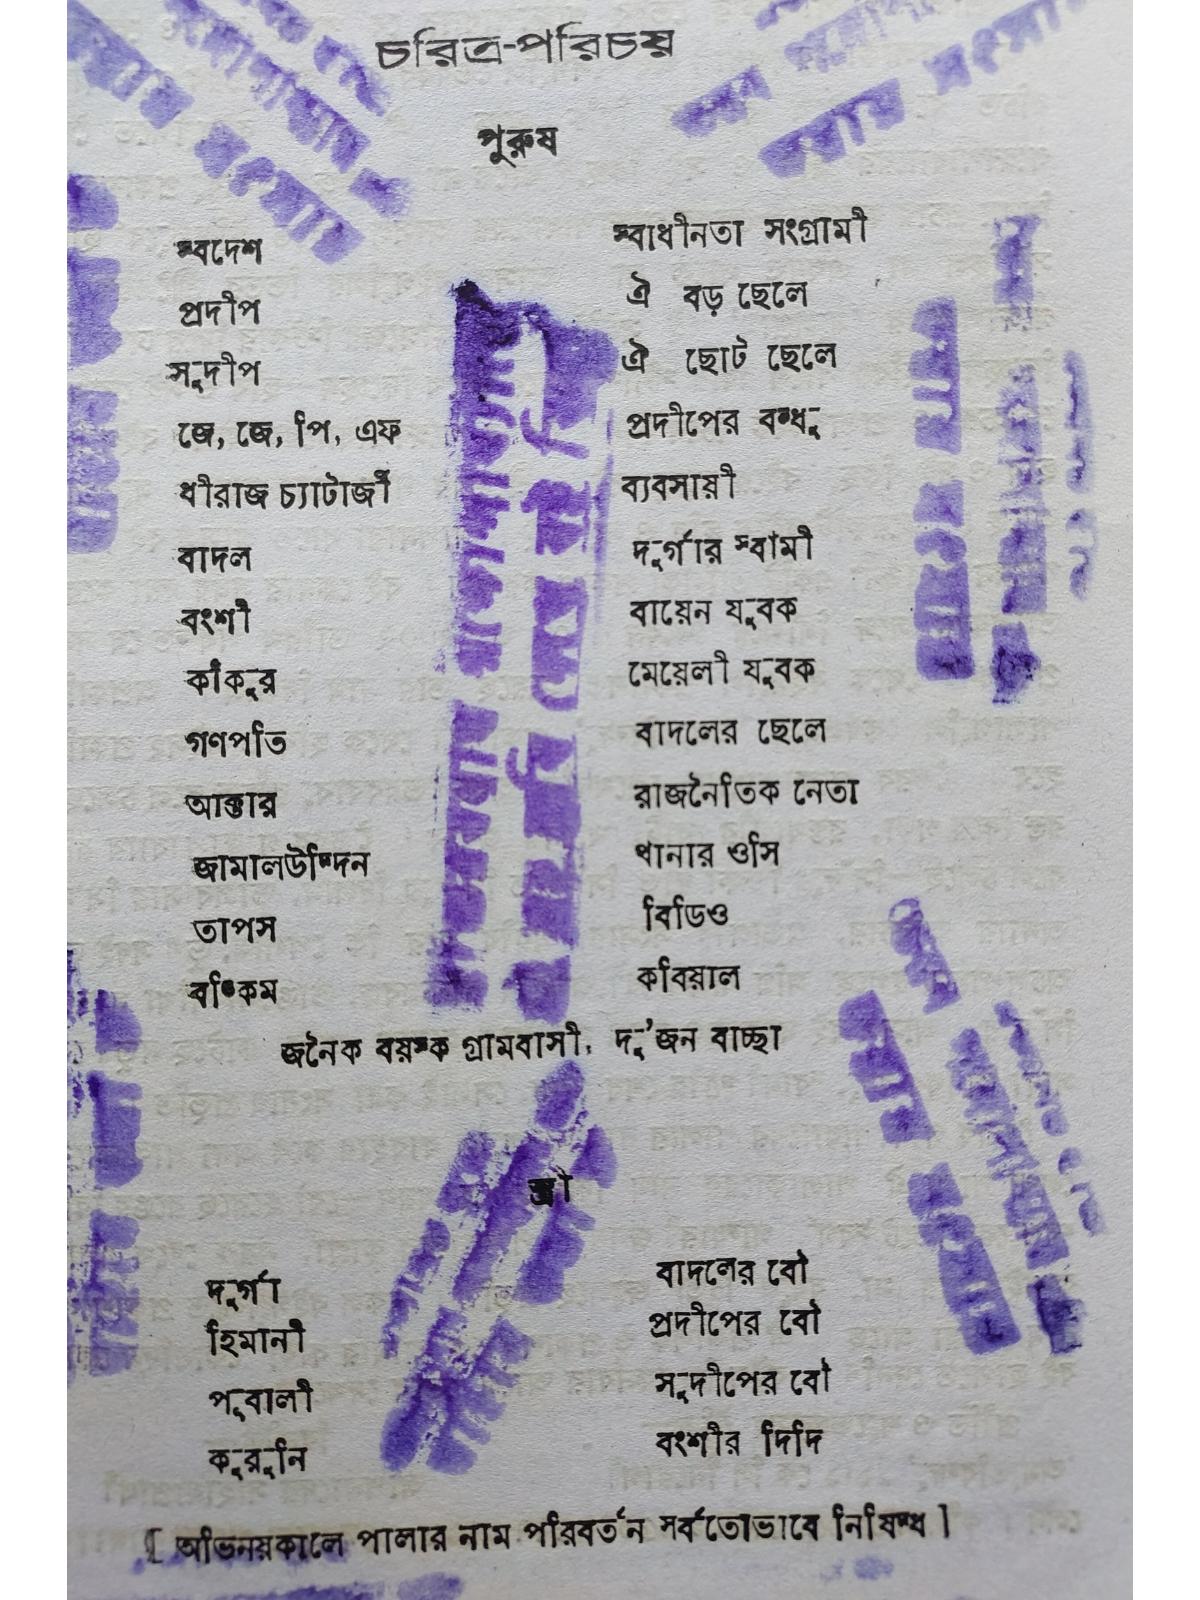 চরিত্র-পরিচয়
পুরুষ
স্বদেশ স্বাধীনতা সংগ্রামী
প্রদীপ ঐ বড় ছেলে
সুদীপ ঐ ছোট ছেলে
জে, জে, পি, এফ প্রদীপের বন্ধু
ধীরাজ চ্যাটার্জী ব্যবসায়ী
বাদল দুর্গার স্বামী
বংশী বায়েন যুবক
কাঁকুর মেয়েলী যুবক
গণপতি বাদলের ছেলে
আক্তার রাজনৈতিক নেতা
জামালউদ্দিন থানার ওসি
তাপস বিডিও
বঙ্কিম কবিয়াল
জনৈক বয়স্ক গ্রামবাসী, দু'জন বাচ্ছা
স্ত্রী
দুর্গা বাদলের বৌ
হিমানী প্রদীপের বৌ
পুবালী সুদীপের বৌ
কুরুনি বংশীর দিদি
[ অভিনয়কালে পালার নাম পরিবর্তন সর্বতোভাবে নিষিদ্ধ ]